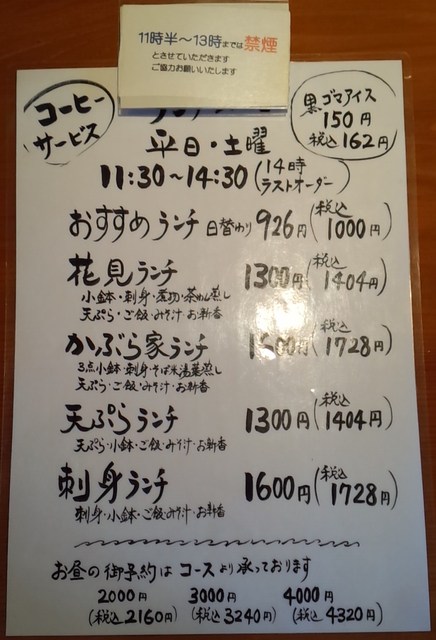 11時半～13時までは禁煙
とさせていただきます
ご協力お願いいたします
コーヒー
サービス
黒ゴマアイス
150円
税込162円
平日・土曜
11:30～14:30(14時ラストオーダー)
おすすめランチ 日替わり 926円(税込1000円)
花見ランチ 1300円(税込1404円)
小鉢・刺身・煮物・茶わん蒸し
天ぷら・ご飯・みそ汁・お新香
かぶら家ランチ 1600円(税込1728円)
3点小鉢・刺身・そば米湯葉蒸し
天ぷら・ご飯・みそ汁・お新香
天ぷらランチ 1300円(税込1404円)
天ぷら・小鉢・ご飯・みそ汁・お新香
刺身ランチ 1600円(税込1728円)
刺身・小鉢・ご飯・みそ汁・お新香
お昼の御予約はコースより承っております
2000円 3000円 4000円
(税込2160円) (税込3240円) (税込4320円)